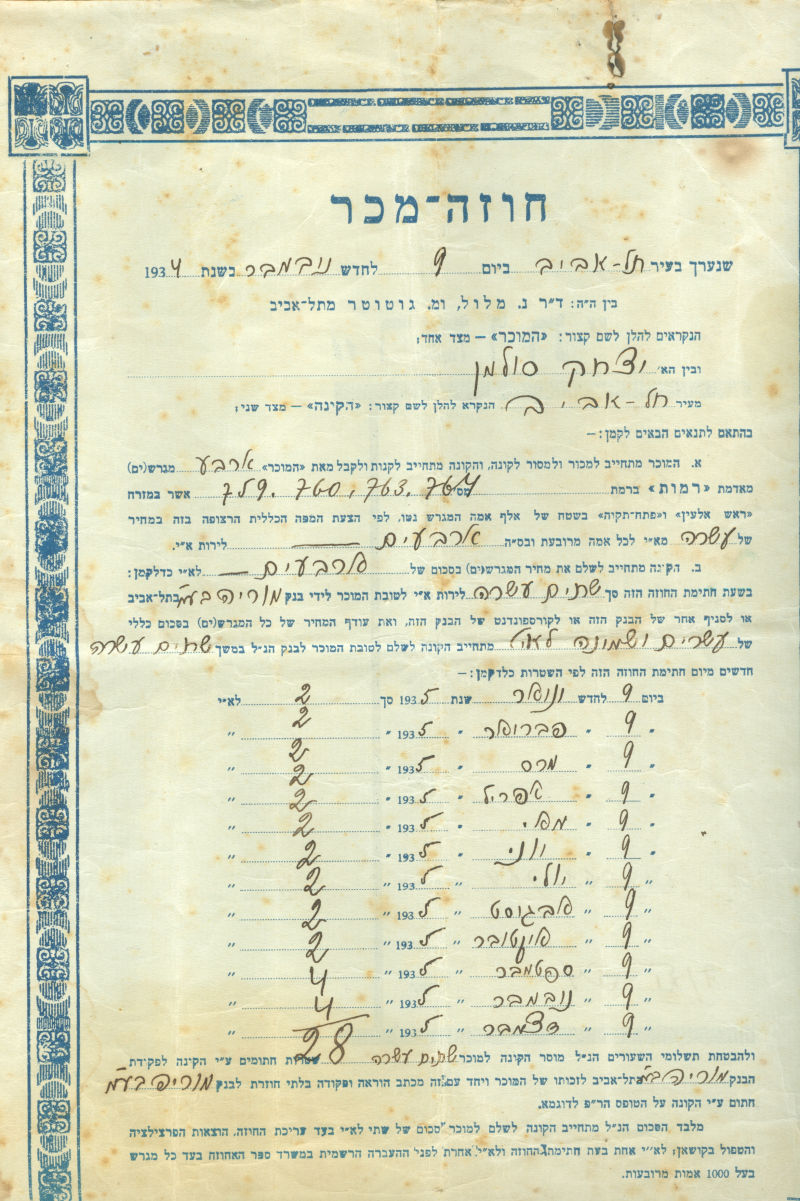 חוזה־מכר
שנערך בעיר תל-אביב ביום 9 לחדש נובמבר בשנת 1934
בין ה״ה: ד״ר נ. מלול, ומ. גוטוטר מתל־אביב
הנקראים להלן לשם קצור: «המוכר» — מצד אחד;
ובין הא׳ יצחק סולמן
מעיר תל-אביב הנקרא להלן לשם קצור: «הקונה» — מצד שני;
בהתאם לתנאים הבאים לקמן:—
א. המוכר מתחייב למכור ולמסור לקונה, והקונה מתחייב לקנות ולקבל מאת «המוכר» ארבע מגרש(ים)
מאדמת «רמות» ברמת מס׳ 764 ,763 ,760 ,759 אשר במזרח
«ראש אלעין» ו«פתח־תקוה» בשטח של אלף אמה המגרש נטו, לפי הצעת המפה הכללית הרצופה בזה במחיר
של עשרה מא״י לכל אמה מרובעת ובס״ה ארבעים לירות א״י.
ב. הקונה מתחייב לשלם את מחיר המגרש(ים) בסכום של ארבעים לא״י כדלקמן:
בשעת חתימת החוזה הזה סך שתים עשרה לירות א״י לטובת המוכר לידי בנק מוריה בע״מ בתל־אביב
או לסניף אחר של הבנק הזה או לקורספונדנט של הבנק הזה, ואת עודף המחיר של כל המגרש(ים) בסכום כללי
של עשרים ושמונה לא״י מתחייב הקונה לשלם לטובת המוכר לבנק הנ״ל במשך שתים עשרה
חדשים מיום חתימת החוזה הזה לפי השטרות כלדקמן:—
ביום 9 לחדש ינואר שנת 1935 סך 2 לא״י
״ 9 ״ פברואר ״ 1935 ״ 2 ״
״ 9 ״ מרס ״ 1935 ״ 2 ״
״ 9 ״ אפריל ״ 1935 ״ 2 ״
״ 9 ״ מאי ״ 1935 ״ 2 ״
״ 9 ״ יוני ״ 1935 ״ 2 ״
״ 9 ״ יולי ״ 1935 ״ 2 ״
״ 9 ״ אבגוסט ״ 1935 ״ 2 ״
״ 9 ״ אוקטובר ״ 1935 ״ 2 ״
״ 9 ״ ספטמבר ״ 1935 ״ 2 ״
״ 9 ״ נובמבר ״ 1935 ״ 4 ״
״ 9 ״ דצמבר ״ 1935 ״ 4 ״
28
ולהבטחת תשלומי השעורים הנ״ל מוסר הקונה למוכר שתים עשרה שטרות חתומים ע״י הקונה לפקודת
הבנק מוריה בע״מ תל־אביב לזכותו של המוכר ויחד עם זה מכתב הוראה ופקודה בלתי חוזרת לבנק מוריה בע״מ
חתום ע״י הקונה על הטופס הר״פ לדוגמא.
מלבד הסכום הנ״ל מתחייב הקונה לשלם למוכר סכום של שתי לא״י בעד עריכת החוזה, הוצאות הפרצלציה
והטפול בקושאן; לא״י אחת בעת חתימת החוזה ולא״י אחרת לפני ההעברה הרשמית במשרד ספר האחוזה בעד כל מגרש
בעל 1000 אמות מרובעות.